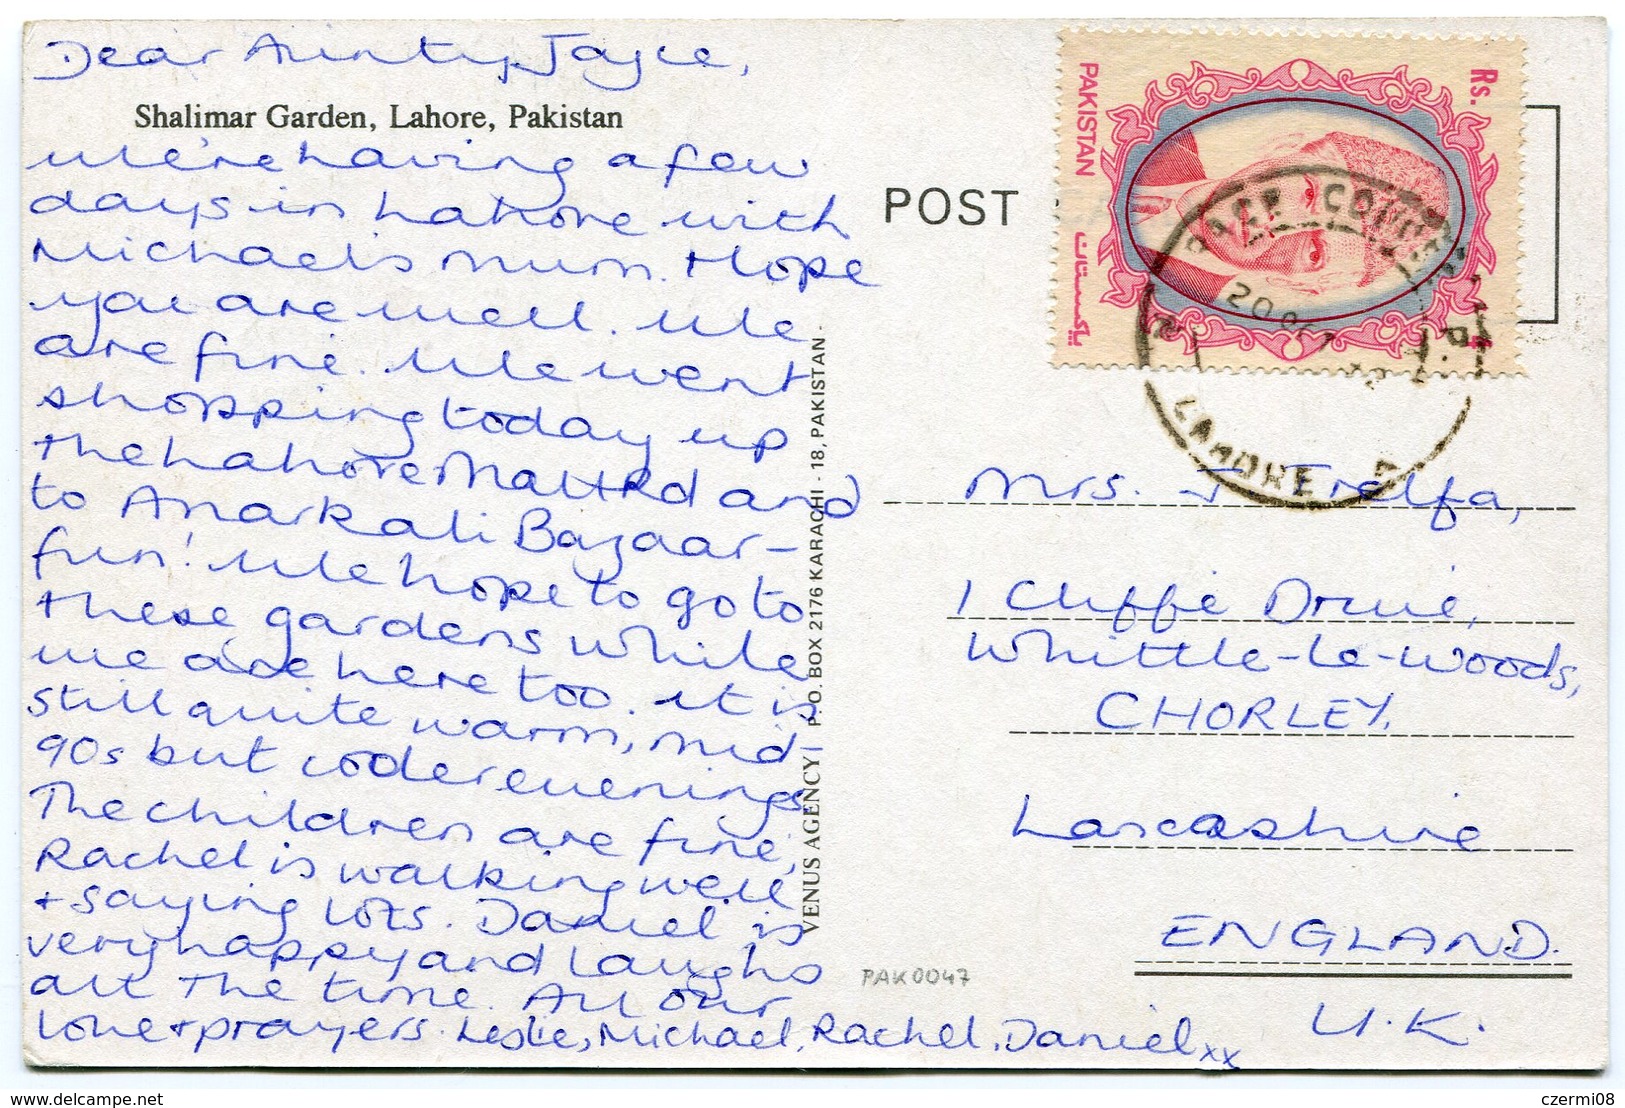 Dear Aunty Joyce,
Shalimar Garden, Lahore, Pakistan
We're having a few
days in Lahore with
Michael's mum. Hope
you are well. We
are fine. We went
shopping today up
the Lahore Mall Rd and
to Anarkali Bazaar –
fun! We hope to go to
these gardens while
we are here too. It is
still quite warm, mid-
90s but cooler evenings.
The children are fine,
Rachel is walking well
+ saying lots. Daniel is
very happy and laughs
all the time. All our
love + prayers. Leslie, Michael, Rachel, Daniel xx
VENUS AGENCY P.O. BOX 2176 KARACHI - 18, PAKISTAN.
POST
Rs.
PAKISTAN
پاکستان
20 OCT
LAHORE
Mrs. J Trelfa,
1 Cliffe Drive,
Whittle-le-Woods,
CHORLEY.
Lancashire
ENGLAND.
U.K.
PAK0047
delcampe.net
czermi08